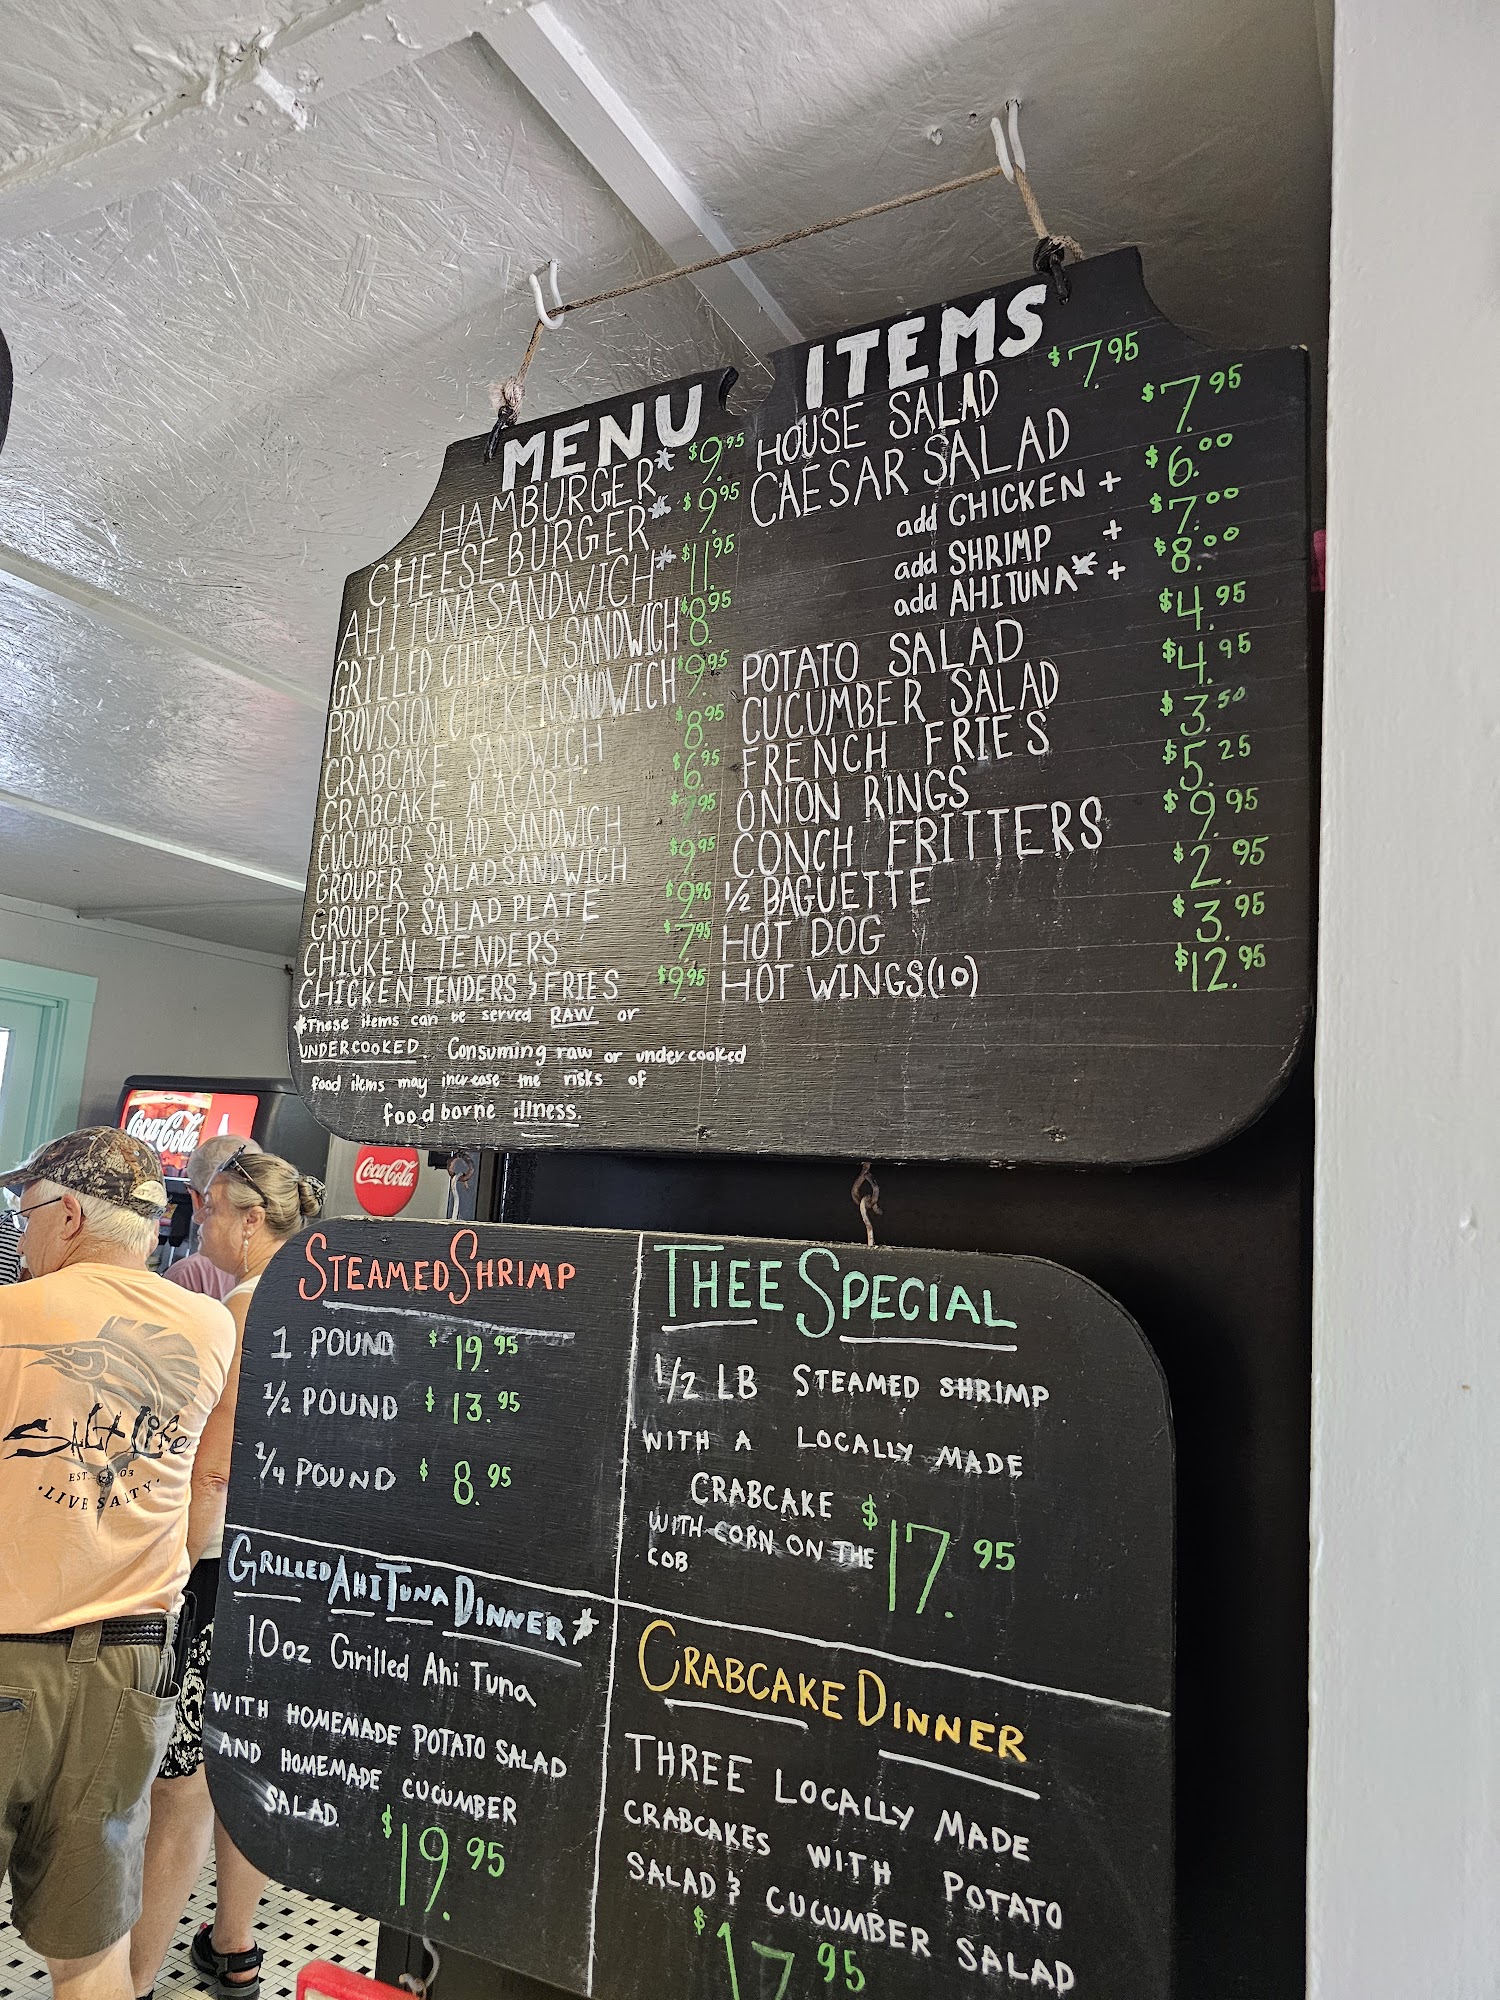 MENU ITEMS
HAMBURGER* $9.95
CHEESEBURGER* $9.95
AHI TUNA SANDWICH* $11.95
GRILLED CHICKEN SANDWICH $8.95
PROVISION CHICKEN SANDWICH $9.95
CRABCAKE SANDWICH $8.95
CRABCAKE ALACART $6.95
CUCUMBER SALAD SANDWICH $7.95
GROUPER SALAD SANDWICH $9.95
GROUPER SALAD PLATE $9.95
CHICKEN TENDERS $7.95
CHICKEN TENDERS & FRIES $9.95
*These items can be served RAW or
UNDERCOOKED. Consuming raw or undercooked
food items may increase the risks of
foodborne illness.
HOUSE SALAD $7.95
CAESAR SALAD $7.95
add CHICKEN + $6.00
add SHRIMP + $7.00
add AHI TUNA* + $8.00
POTATO SALAD $4.95
CUCUMBER SALAD $4.95
FRENCH FRIES $3.50
ONION RINGS $5.25
CONCH FRITTERS $9.95
1/2 BAGUETTE $2.95
HOT DOG $3.95
HOT WINGS(10) $12.95
Coca-Cola
Coca-Cola
SALT Life
EST. 03
·LIVE SALTY·
STEAMED SHRIMP
1 POUND $19.95
1/2 POUND $13.95
1/4 POUND $8.95
THEE SPECIAL
1/2 LB STEAMED SHRIMP
WITH A LOCALLY MADE
CRABCAKE $17.95
WITH CORN ON THE
COB
GRILLED AHI TUNA DINNER*
10oz Grilled Ahi Tuna
WITH HOMEMADE POTATO SALAD
AND HOMEMADE CUCUMBER
SALAD. $19.95
CRABCAKE DINNER
THREE LOCALLY MADE
CRABCAKES WITH POTATO
SALAD & CUCUMBER SALAD
$17.95